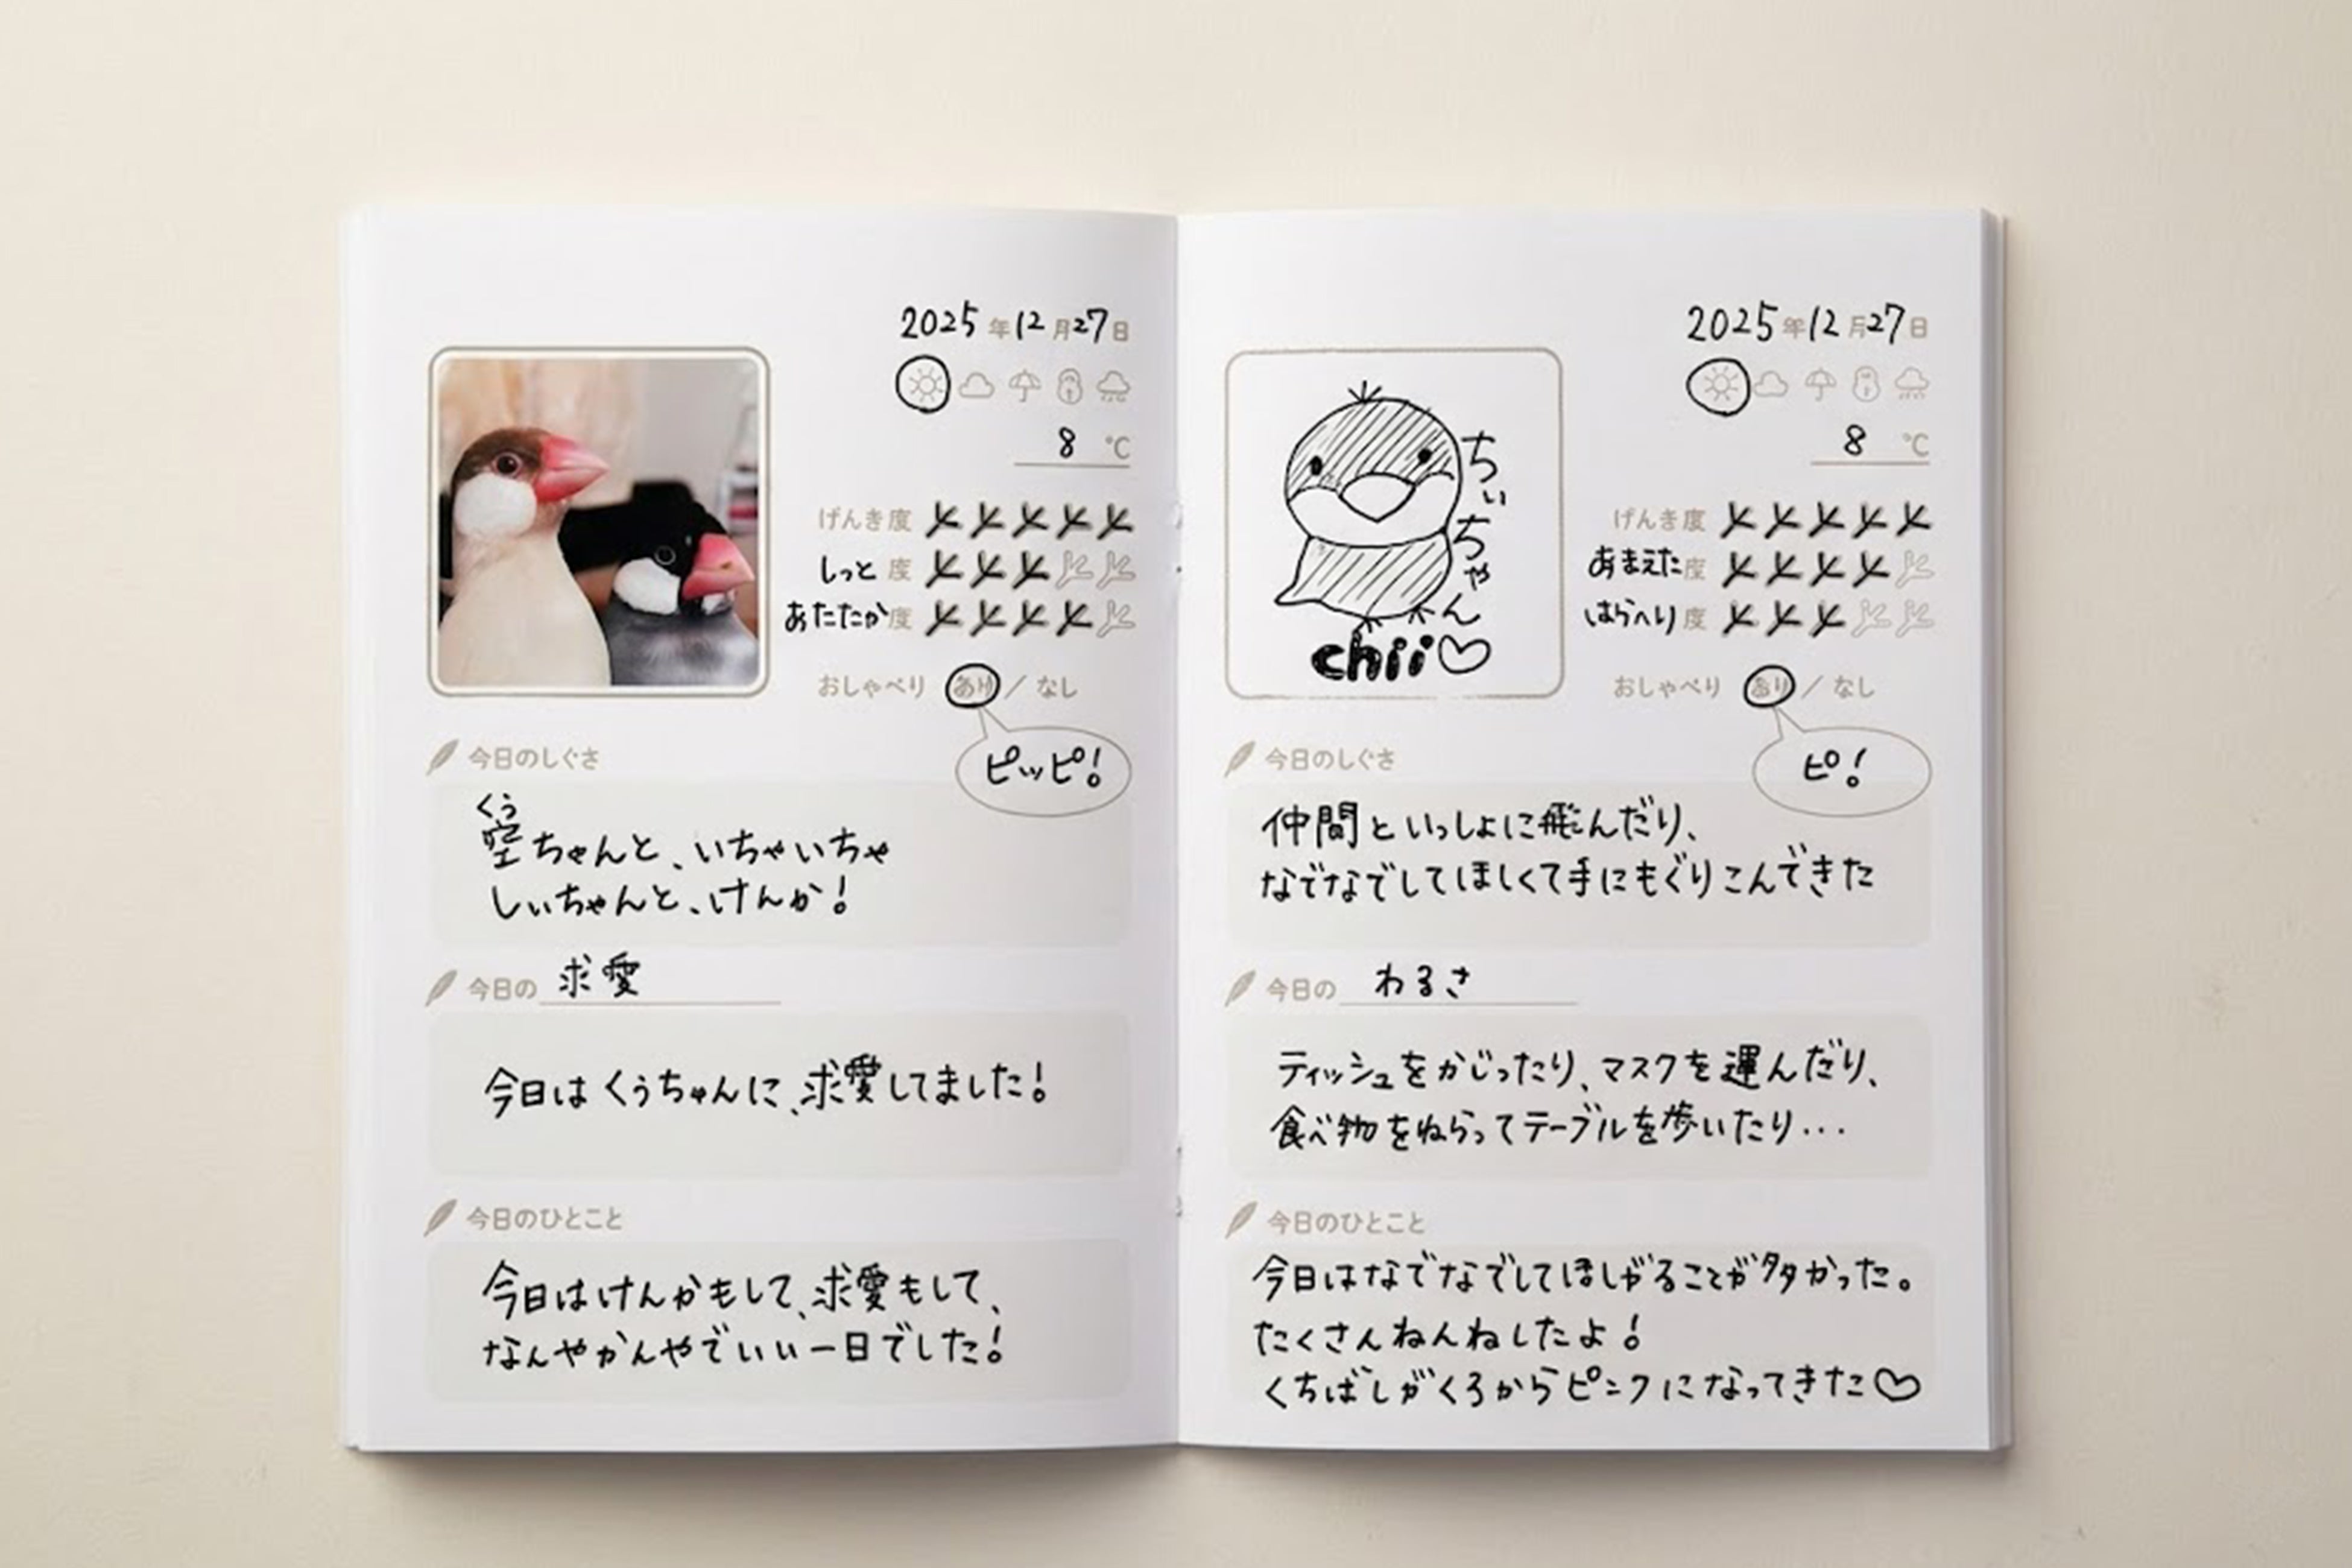 2025年12月27日
8 ℃
げんき度
しっと度
あたたか度
おしゃべり あり / なし
ピッピ!
今日のしぐさ
くう
空ちゃんと、いちゃいちゃ
しぃちゃんと、けんか!
今日の 求愛
今日はくぅちゃんに、求愛してました!
今日のひとこと
今日はけんかもして、求愛もして、
なんやかんやでいい一日でした!
2025年12月27日
8 ℃
ちぃちゃん
chii♡
げんき度
あまえた度
はらへり度
おしゃべり あり / なし
ピ!
今日のしぐさ
仲間といっしょに飛んだり、
なでなでしてほしくて手にもぐりこんできた
今日の わるさ
ティッシュをかじったり、マスクを運んだり、
食べ物をねらってテーブルを歩いたり...
今日のひとこと
今日はなでなでしてほしがることが多かった。
たくさんねんねしたよ!
くちばしがくろからピンクになってきた♡